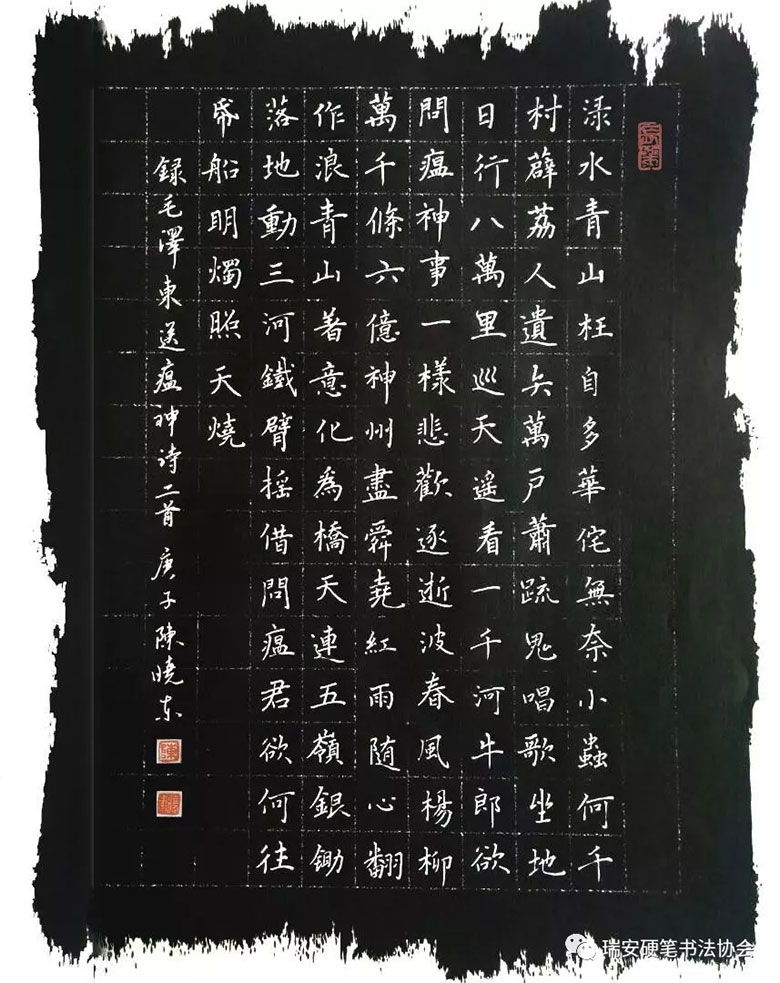 渌水青山枉自多華佗無奈小蟲何千
村薜荔人遺矢萬戶蕭疏鬼唱歌坐地
日行八萬里巡天遥看一千河牛郎欲
問瘟神事一樣悲歡逐逝波春風楊柳
萬千條六億神州盡舜堯紅雨随心翻
作浪青山著意化為橋天連五嶺銀鋤
落地動三河鐵臂摇借問瘟君欲何往
帋船明燭照天燒
録毛澤東送瘟神诗二首 庚子陳曉东
瑞安硬笔书法协会